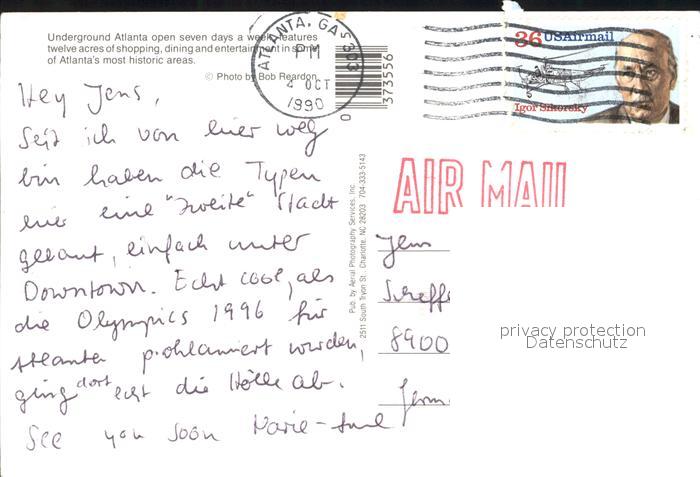 Underground Atlanta open seven days a week features
twelve acres of shopping, dining and entertainment in some
of Atlanta's most historic areas.
© Photo by Bob Reardon
ATLANTA, GA 303
PM
4 OCT
1990
0 373556
36 USAirmail
Igor Sikorsky
AIR MAIL
Hey Jens,
Seit ich von hier weg
bin haben die Typen
hier eine "zweite" Stadt
gebaut, einfach unter
Downtown. Echt cool, als
die Olympics 1996 für
Atlanta prohlamiert wurden,
ging dort echt die Hölle ab.
See you soon Marie-
Pub. by Aerial Photography Services, Inc.
2511 South Tryon St., Charlotte, NC 28203 704-333-5143
Jens
8900
Germ
privacy protection
Datenschutz